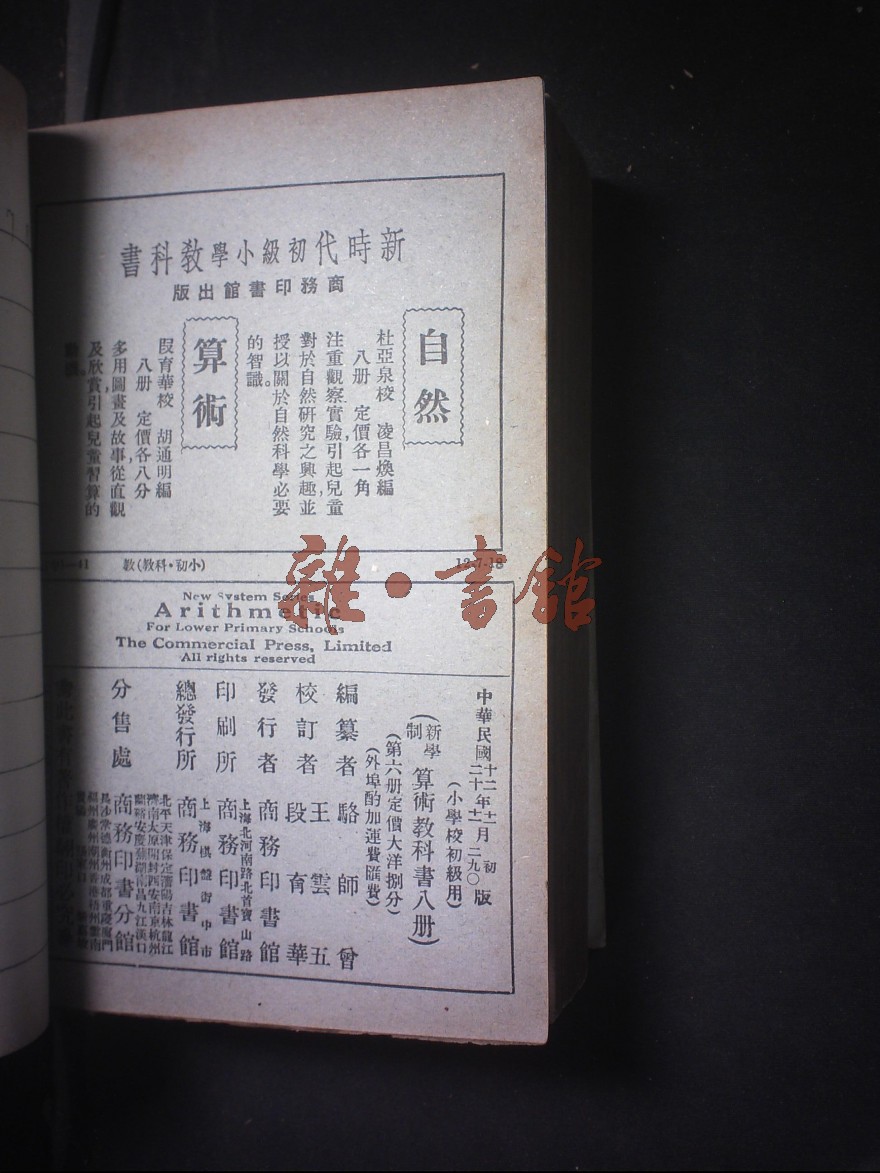 新時代初級小學教科書
商務印書館出版
自然
杜亞泉校 凌昌煥編
八册 定價各一角
注重觀察實驗,引起兒童
對於自然研究之興趣,並
授以關於自然科學必要
的智識。
算術
段育華校 胡通明編
八册 定價各八分
多用圖畫及故事,從直觀
及欣賞,引起兒童習算的
教(小初•科教)
12-7-18
New System Series
Arithmetic
For Lower Primary Schools
The Commercial Press, Limited
All rights reserved
中華民國
十二年十一月初版
二十年十二月二九〇版
(小學校初級用)
(新學制算術教科書八册)
(第六册定價大洋捌分)
(外埠酌加運費匯費)
編纂者 駱師曾
校訂者 王雲五
段育華
發行者 商務印書館
上海北河南路北首寶山路
印刷所 商務印書館
上海棋盤街中市
總發行所 商務印書館
北平天津保定瀋陽吉林龍江
濟南太原開封西安南京杭州
蘭谿安慶蕪湖南昌九江漢口
分售處 商務印書分館
長沙常德衡州成都重慶廈門
福州廣州潮州香港梧州雲南
雜•書館